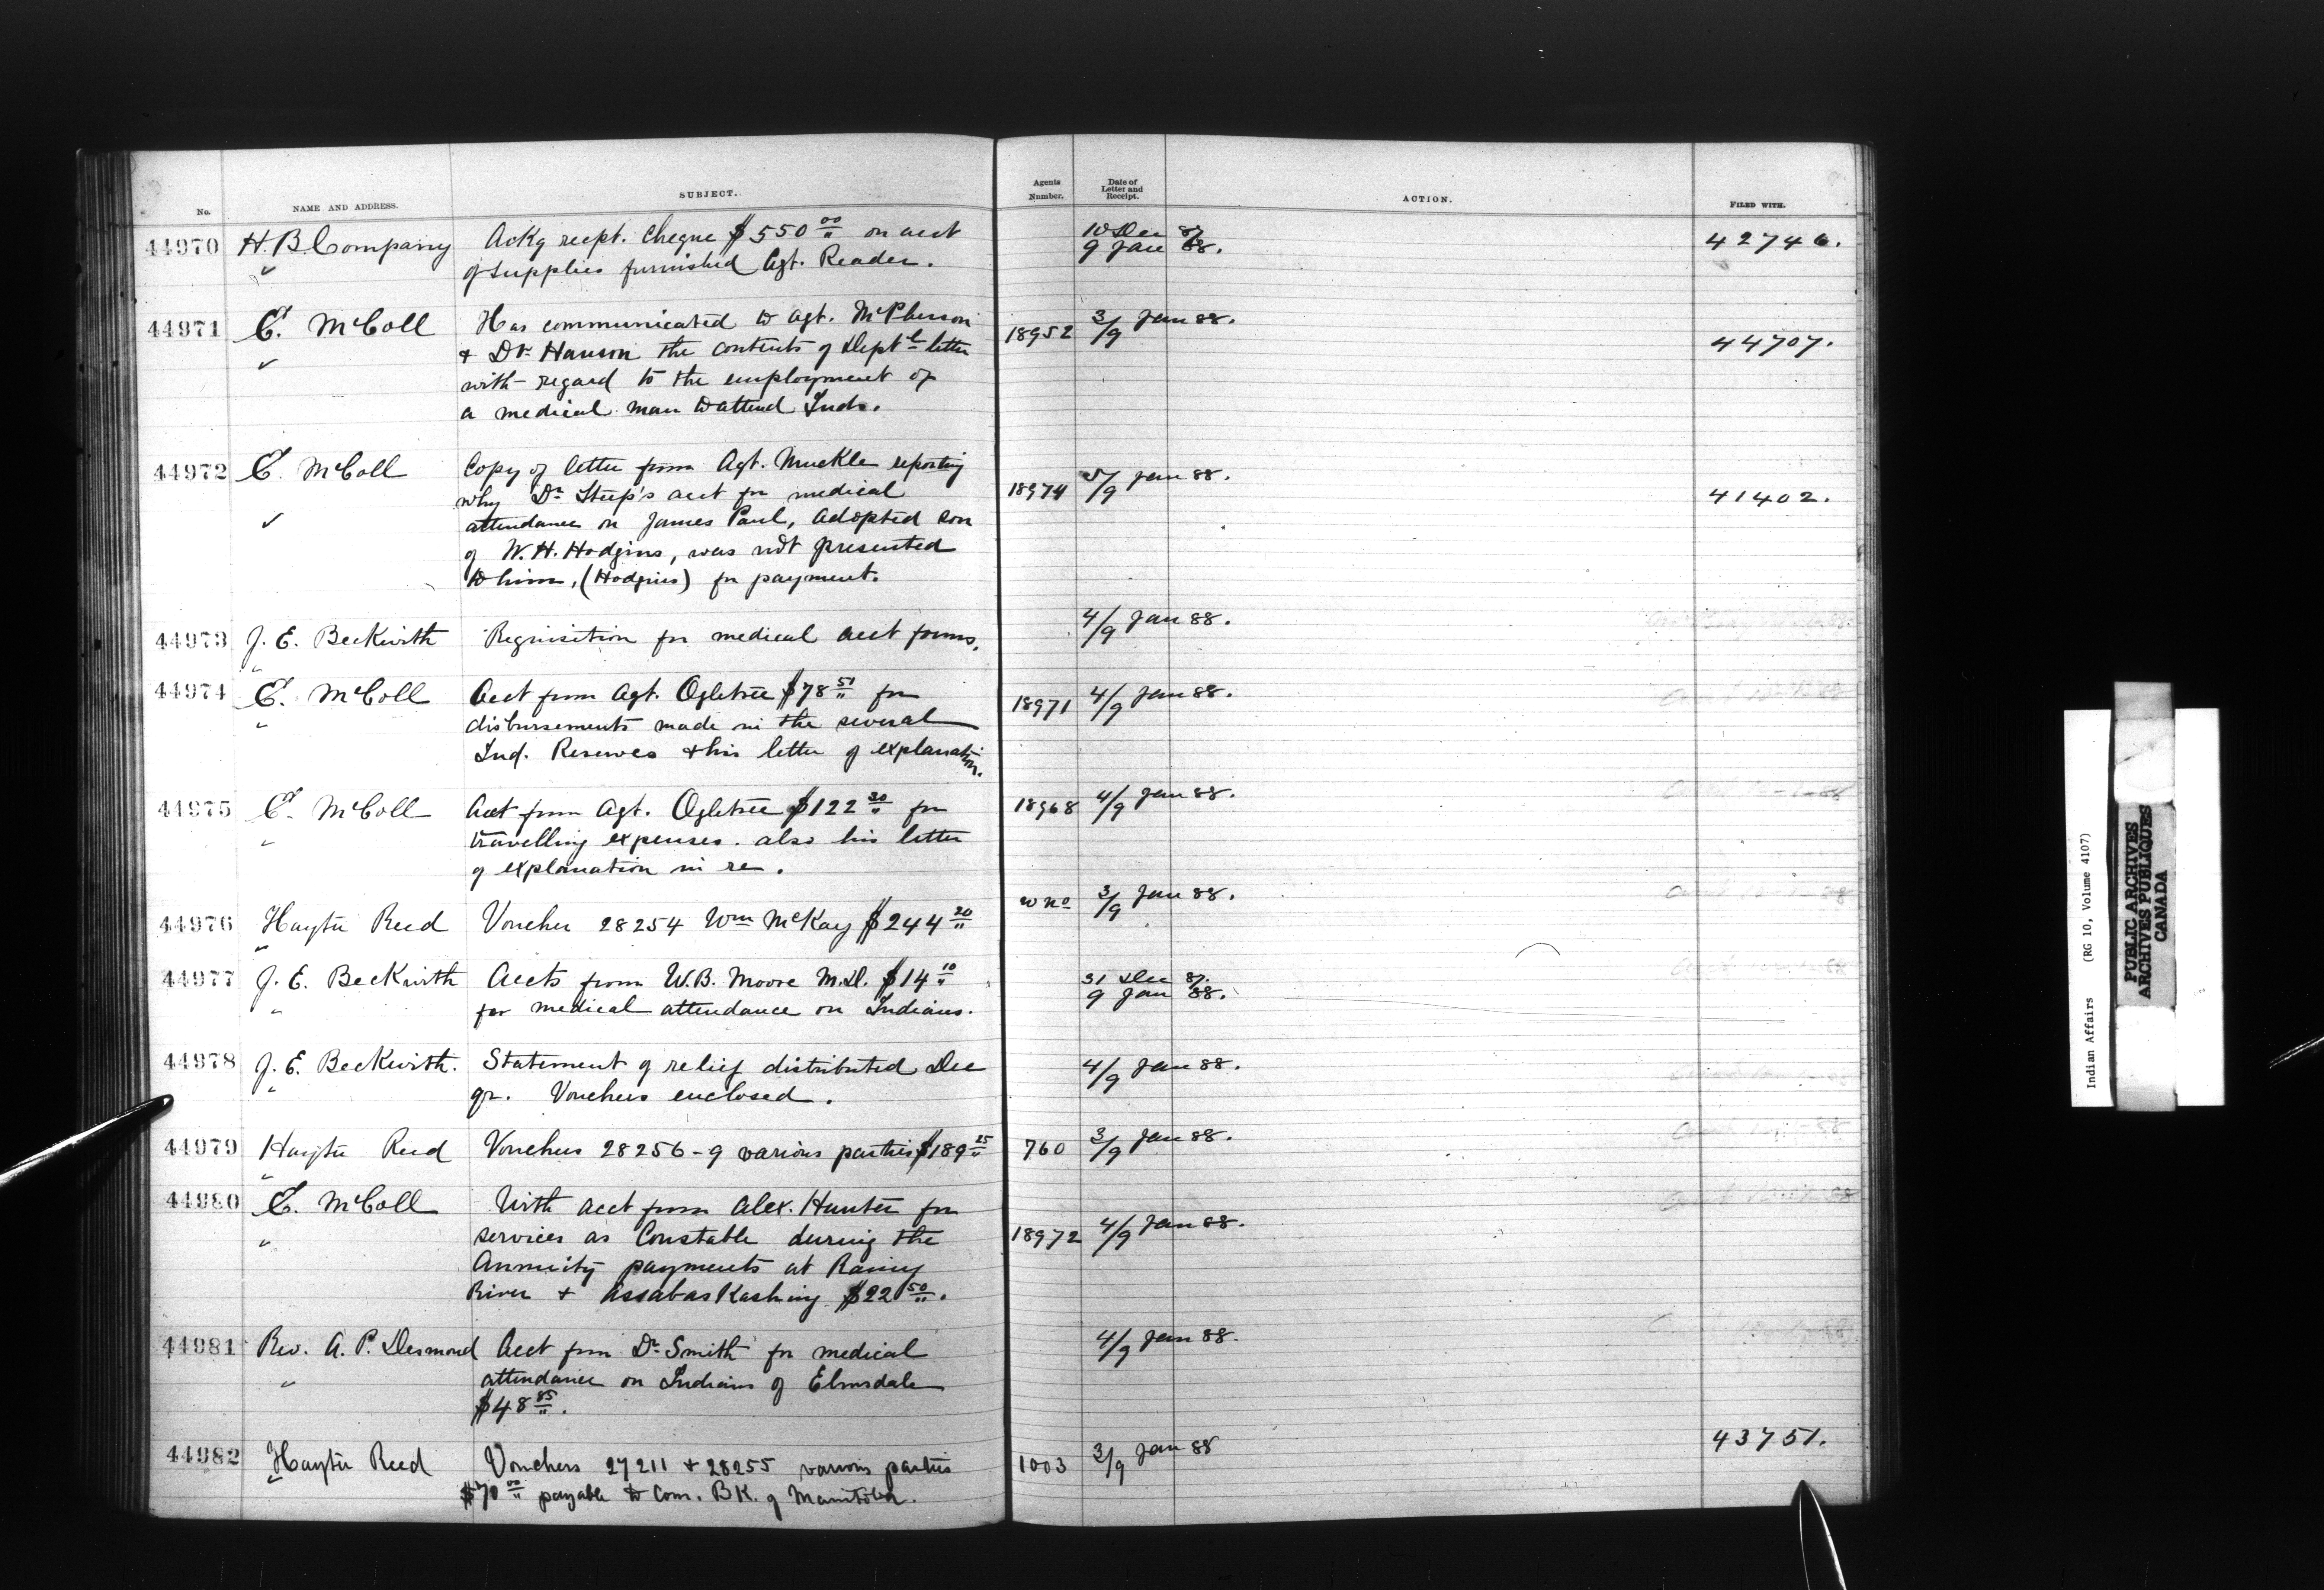 No. NAME AND ADDRESS. SUBJECT. Agents Number. Date of Letter and Receipt. ACTION. FILED WITH.
44970 H. B. Company Ackg recpt. cheque $550 00 on acct 10 Dec 87 42746.
of supplies furnished Agt. Reader. 9 Jan 88.
44971 E. McColl Has communicated to Agt. McPherson 18952 3/9 Jan 88. 44707.
& Dr. Hanson the contents of Deptl letter
with regard to the employment of
a medical man to attend Inds.
44972 E. McColl Copy of letter from Agt. Muckle reporting 18974 5/9 Jan 88. 41402.
why Dr Steep's acct for medical
attendance on James Paul, adopted son
of W. H. Hodgins, was not presented
to him, (Hodgins) for payment.
44973 J. E. Beckwith Requisition for medical acct forms. 4/9 Jan 88.
44974 E. McColl Acct from Agt. Ogletree $78 51 for 18971 4/9 Jan 88.
disbursements made in the several
Ind. Reserves & his letter of explanation.
44975 E. McColl Acct from Agt. Ogletree $122 30 for 18968 4/9 Jan 88.
travelling expenses. also his letter
of explanation in re.
44976 Hayter Reed Voucher 28254 Wm McKay $244 20 w no 3/9 Jan 88.
44977 J. E. Beckwith Accts from W. B. Moore M.D. $14 10 31 Dec 87.
for medical attendance on Indians. 9 Jan 88.
44978 J. E. Beckwith. Statement of relief distributed Dec 4/9 Jan 88.
qr. Vouchers enclosed.
44979 Hayter Reed Vouchers 28256-9 various parties $189 25 760 3/9 Jan 88.
44980 E. McColl With acct from Alex. Hunter for 18972 4/9 Jan 88.
services as Constable during the
Annuity payments at Rainy
River & Assabaskashing $22 50.
44981 Rev. A. P. Desmond Acct from Dr Smith for medical 4/9 Jan 88.
attendance on Indians of Elmsdale
$48 85.
44982 Hayter Reed Vouchers 27211 & 28255 various parties 1003 3/9 Jan 88 43751.
$70 00 payable to Com. BK. of Manitoba.
Indian Affairs (RG 10, Volume 4107)
PUBLIC ARCHIVES
ARCHIVES PUBLIQUES
CANADA